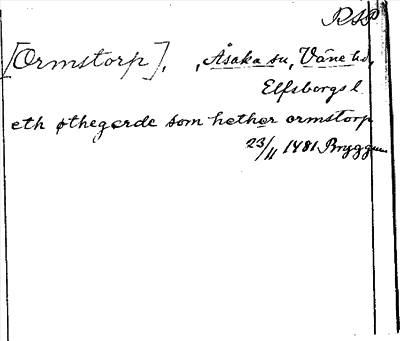 RAP
[Ormstorp], , Åsaka sn, Väne hd,
Elfsborgs l.
eth øthegerde som hether ormstorp
23/11 1481 Bryggum